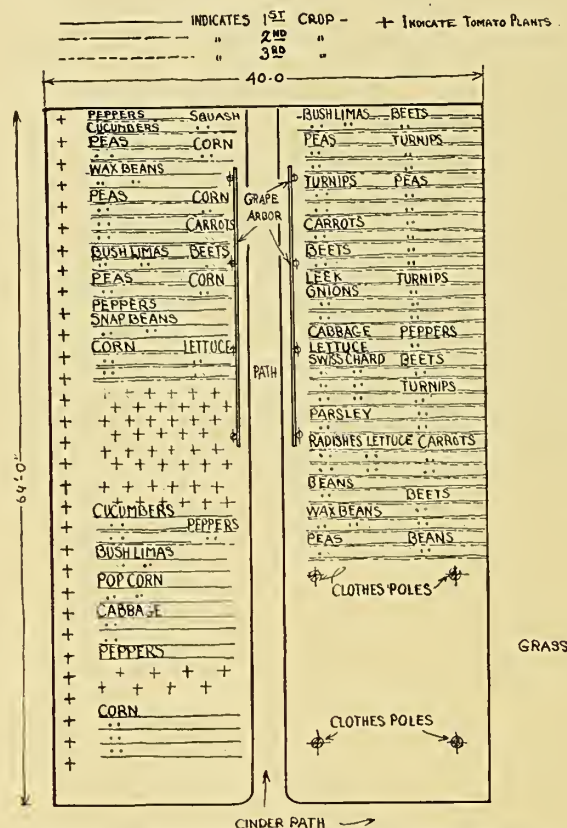 INDICATES 1ST CROP - + INDICATE TOMATO PLANTS
" 2ND "
" 3RD "
40-0
64'-0"
PEPPERS SQUASH
CUCUMBERS " "
PEAS CORN
" " " "
WAX BEANS
" "
PEAS CORN
" " " "
" " CARROTS
" " " "
BUSH LIMAS BEETS
" " " "
PEAS CORN
" " " "
PEPPERS
SNAP BEANS
" " " "
CORN LETTUCE
" " " "
" " " "
CUCUMBERS
" " PEPPERS
" " " "
BUSH LIMAS
" "
POP CORN
" "
CABBAGE
" "
" "
PEPPERS
CORN
" "
" "
" "
GRAPE
ARBOR
PATH
BUSH LIMAS BEETS
" " " "
PEAS TURNIPS
" " " "
" " " "
TURNIPS PEAS
" " " "
" " " "
CARROTS
" " " "
BEETS
" " " "
LEEK TURNIPS
GNIONS
" " " "
CABBAGE PEPPERS
LETTUCE
SWISS CHARD BEETS
" " " "
" " TURNIPS
" " " "
PARSLEY
" " " "
RADISHES LETTUCE CARROTS
" " " " " "
" " " "
BEANS
" " BEETS
WAX BEANS
" " " "
PEAS BEANS
" "
CLOTHES POLES
GRASS
CLOTHES POLES
CINDER PATH